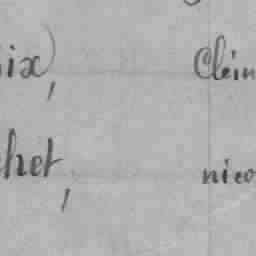 ix), Clém
het, nico